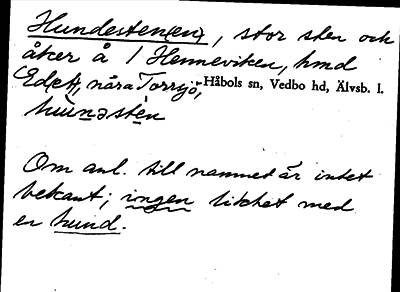 Hundesten(en), stor sten och
åker å 1 Henneviken, hmd
Ed(et), nära Torrsjö, Håbols sn, Vedbo hd, Älvsb. l.
hùnəstèn
Om anl. till namnet är intet
bekant; ingen likhet med
en hund.